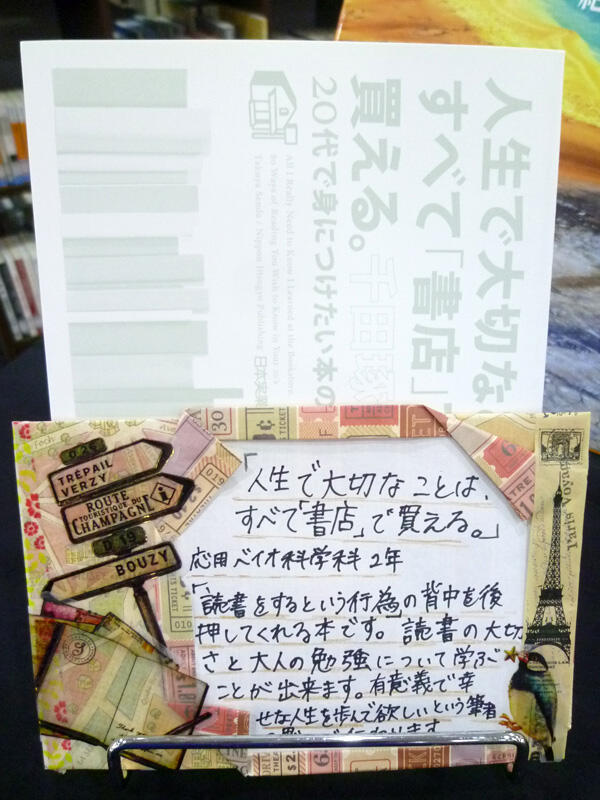 人生で大切な
すべて「書店」
買える。
20代で身につけたい本の
千田琢
All I Really Need to Know I Learned at the Bookstore
to Ways of Reading You Wish to Know in Your 20's
Takuya Senda / Nippon Jitsugyo Publishing
日本実
「人生で大切なことは、
すべて「書店」で買える。」
応用バイオ科学科 2年
「読書をするという行為」の背中を後
押してくれる本です。読書の大切
さと大人の勉強について学ぶ
ことが出来ます。有意義で幸
せな人生を歩んで欲しいという筆者
D 26
TRÉPAIL
VERZY
ROUTE
TOURISTIQUE DU
CHAMPAGNE
i
D 19
BOUZY
TICKET
30
019
Paris